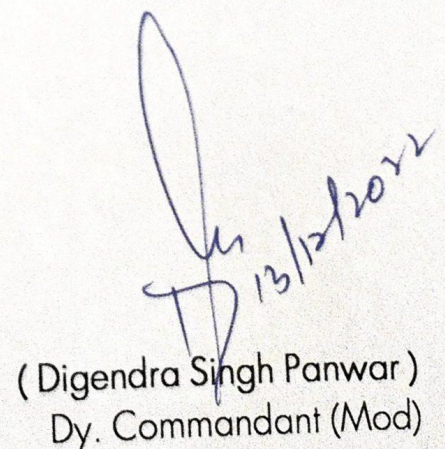 13/12/2022
( Digendra Singh Panwar )
Dy. Commandant (Mod)